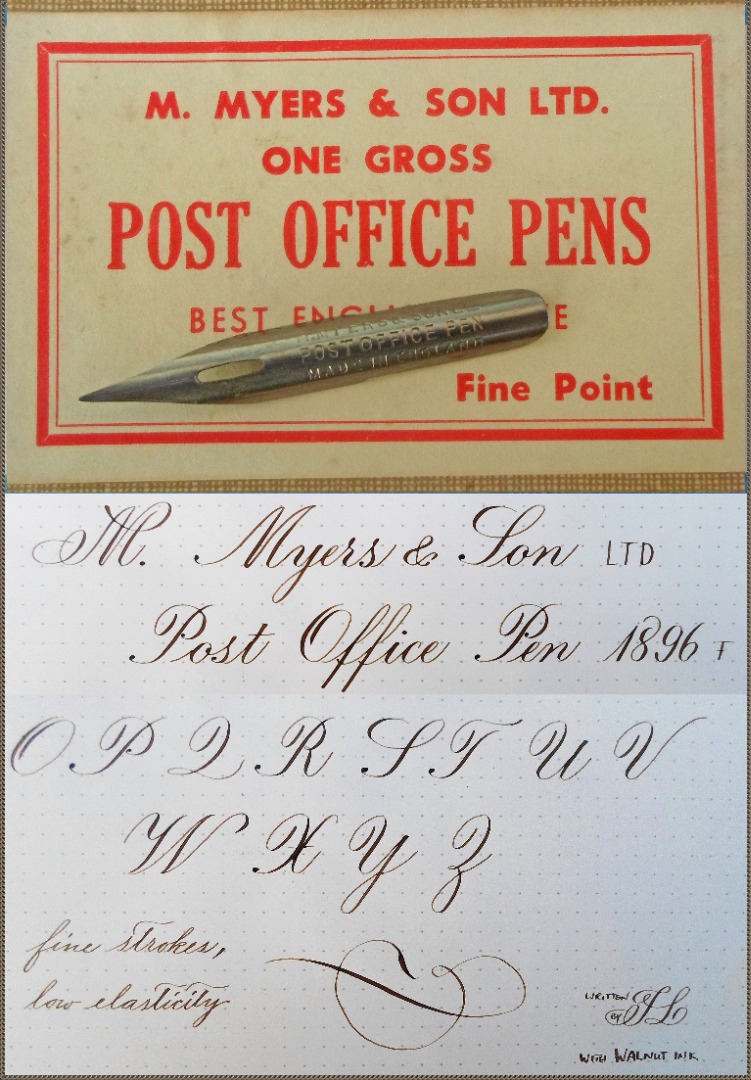 M. MYERS & SON LTD.
ONE GROSS
POST OFFICE PENS
BEST
POST OFFICE PEN
MADE IN ENGLAND
Fine Point
M. Myers & Son LTD
Post Office Pen 1896 F
O P Q R S T U V
W X Y Z
fine strokes,
low elasticity
WRITTEN
BY
WITH WALNUT INK